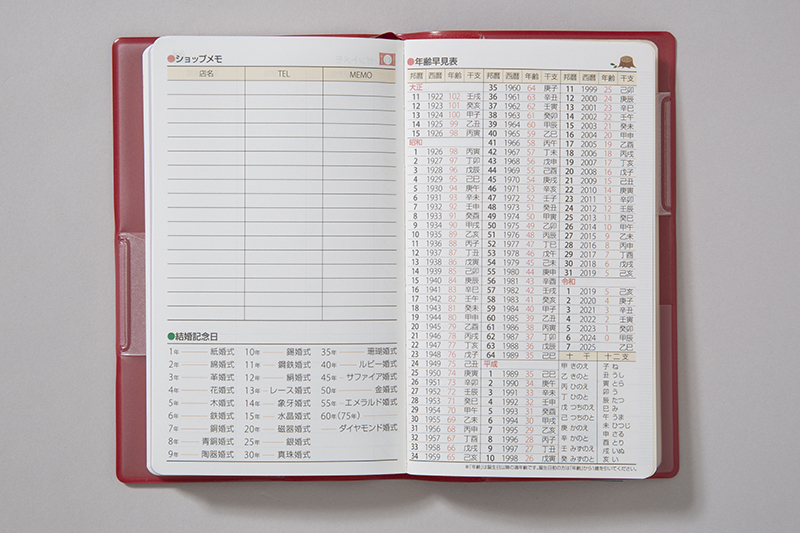 ●ショップメモ
店名 TEL MEMO
●結婚記念日
1年 紙婚式 10年 錫婚式 35年 珊瑚婚式
2年 綿婚式 11年 鋼鉄婚式 40年 ルビー婚式
3年 革婚式 12年 絹婚式 45年 サファイア婚式
4年 花婚式 13年 レース婚式 50年 金婚式
5年 木婚式 14年 象牙婚式 55年 エメラルド婚式
6年 鉄婚式 15年 水晶婚式 60年(75年)
7年 銅婚式 20年 磁器婚式 ダイヤモンド婚式
8年 青銅婚式 25年 銀婚式
9年 陶器婚式 30年 真珠婚式
●年齢早見表
邦暦 西暦 年齢 干支 邦暦 西暦 年齢 干支 邦暦 西暦 年齢 干支
大正
11 1922 102 壬戌
12 1923 101 癸亥
13 1924 100 甲子
14 1925 99 乙丑
15 1926 98 丙寅
昭和
1 1926 98 丙寅
2 1927 97 丁卯
3 1928 96 戊辰
4 1929 95 己巳
5 1930 94 庚午
6 1931 93 辛未
7 1932 92 壬申
8 1933 91 癸酉
9 1934 90 甲戌
10 1935 89 乙亥
11 1936 88 丙子
12 1937 87 丁丑
13 1938 86 戊寅
14 1939 85 己卯
15 1940 84 庚辰
16 1941 83 辛巳
17 1942 82 壬午
18 1943 81 癸未
19 1944 80 甲申
20 1945 79 乙酉
21 1946 78 丙戌
22 1947 77 丁亥
23 1948 76 戊子
24 1949 75 己丑
25 1950 74 庚寅
26 1951 73 辛卯
27 1952 72 壬辰
28 1953 71 癸巳
29 1954 70 甲午
30 1955 69 乙未
31 1956 68 丙申
32 1957 67 丁酉
33 1958 66 戊戌
34 1959 65 己亥
35 1960 64 庚子
36 1961 63 辛丑
37 1962 62 壬寅
38 1963 61 癸卯
39 1964 60 甲辰
40 1965 59 乙巳
41 1966 58 丙午
42 1967 57 丁未
43 1968 56 戊申
44 1969 55 己酉
45 1970 54 庚戌
46 1971 53 辛亥
47 1972 52 壬子
48 1973 51 癸丑
49 1974 50 甲寅
50 1975 49 乙卯
51 1976 48 丙辰
52 1977 47 丁巳
53 1978 46 戊午
54 1979 45 己未
55 1980 44 庚申
56 1981 43 辛酉
57 1982 42 壬戌
58 1983 41 癸亥
59 1984 40 甲子
60 1985 39 乙丑
61 1986 38 丙寅
62 1987 37 丁卯
63 1988 36 戊辰
64 1989 35 己巳
平成
1 1989 35 己巳
2 1990 34 庚午
3 1991 33 辛未
4 1992 32 壬申
5 1993 31 癸酉
6 1994 30 甲戌
7 1995 29 乙亥
8 1996 28 丙子
9 1997 27 丁丑
10 1998 26 戊寅
11 1999 25 己卯
12 2000 24 庚辰
13 2001 23 辛巳
14 2002 22 壬午
15 2003 21 癸未
16 2004 20 甲申
17 2005 19 乙酉
18 2006 18 丙戌
19 2007 17 丁亥
20 2008 16 戊子
21 2009 15 己丑
22 2010 14 庚寅
23 2011 13 辛卯
24 2012 12 壬辰
25 2013 11 癸巳
26 2014 10 甲午
27 2015 9 乙未
28 2016 8 丙申
29 2017 7 丁酉
30 2018 6 戊戌
31 2019 5 己亥
令和
1 2019 5 己亥
2 2020 4 庚子
3 2021 3 辛丑
4 2022 2 壬寅
5 2023 1 癸卯
6 2024 0 甲辰
7 2025 乙巳
十干 十二支
甲 きのえ 子 ね
乙 きのと 丑 うし
丙 ひのえ 寅 とら
丁 ひのと 卯 う
戊 つちのえ 辰 たつ
己 つちのと 巳 み
庚 かのえ 午 うま
辛 かのと 未 ひつじ
壬 みずのえ 申 さる
癸 みずのと 酉 とり
戌 いぬ
亥 い
※「年齢」は誕生日以降の満年齢です。誕生日前の方は「年齢」から1歳を引いてください。